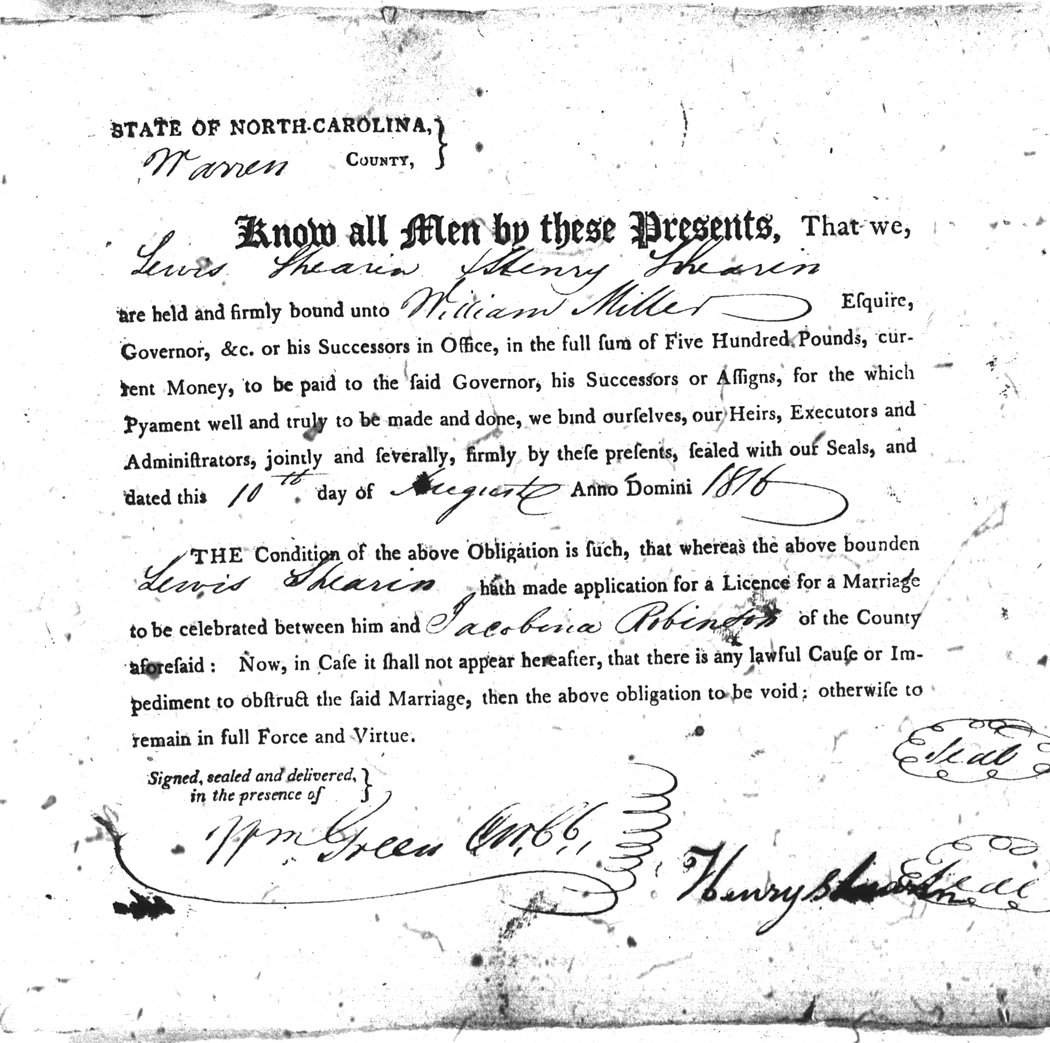 STATE OF NORTH-CAROLINA, }
Warren COUNTY,
Know all Men by these Presents, That we,
Lewis Shearin & Henry Shearin
are held and firmly bound unto William Miller Eſquire,
Governor, &c. or his Successors in Office, in the full ſum of Five Hundred Pounds, cur-
rent Money, to be paid to the ſaid Governor, his Successors or Aſſigns, for the which
Pyament well and truly to be made and done, we bind ourſelves, our Heirs, Executors and
Adminiſtrators, jointly and ſeverally, firmly by theſe preſents, ſealed with our Seals, and
dated this 10th day of August Anno Domini 1816
THE Condition of the above Obligation is ſuch, that whereas the above bounden
Lewis Shearin hath made application for a Licence for a Marriage
to be celebrated between him and Jacobina Robinson of the County
aforeſaid: Now, in Caſe it ſhall not appear hereafter, that there is any lawful Cauſe or Im-
pediment to obſtruct the ſaid Marriage, then the above obligation to be void: otherwiſe to
remain in full Force and Virtue.
Seal
Signed, sealed and delivered, }
in the presence of
Wm Green
Henry Shearin Seal